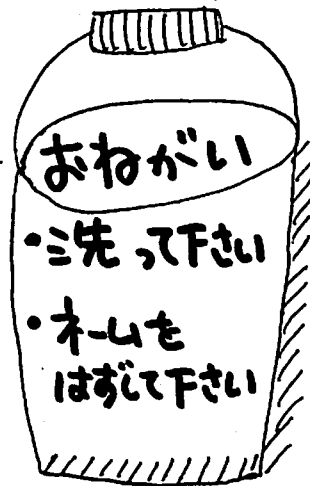 おねがい
・洗って下さい
・ネームを
はずして下さい